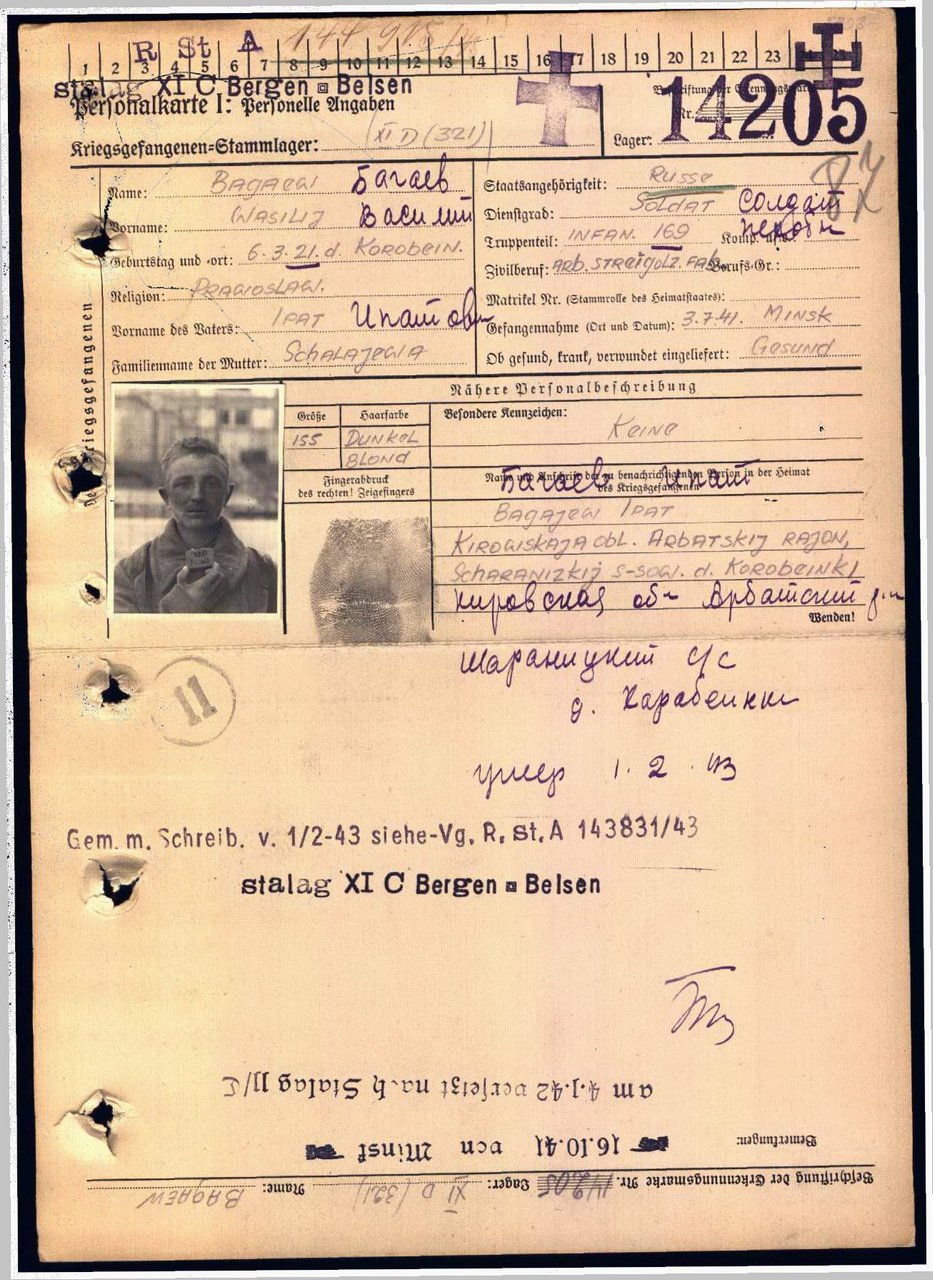 R St A
1 2 3 4 5 6 7 8 9 10 11 12 13 14 15 16 17 18 19 20 21 22 23
stalag XI C Bergen Belsen
Personalkarte I: Personelle Angaben
Kriegsgefangenen-Stammlager: XI D (321)
Nr. 14205
Lager:
87
Name: BAGAEW Багаев
Vorname: WASILIJ Василий
Geburtstag und -ort: 6.3.21. d. KOROBEIN.
Religion: PRAWOSLAW.
Vorname des Vaters: IPAT Ипатов
Familienname der Mutter: SCHALAJEWA
Staatsangehörigkeit: RUSSE
Dienstgrad: SOLDAT Солдат
Truppenteil: INFAN. 169 Komp. usw.
Zivilberuf: ARB. STREIGOLZ. FAB. Berufs-Gr.:
Matrikel Nr. (Stammrolle des Heimatstaates):
Gefangennahme (Ort und Datum): 3.7.41. MINSK
Ob gesund, krank, verwundet eingeliefert: GESUND
des Kriegsgefangenen
Nähere Personalbeschreibung
Größe Haarfarbe
155 DUNKEL
BLOND
Fingerabdruck
des rechten! Zeigefingers
Besondere Kennzeichen:
KEINE
Name und Anschrift der zu benachrichtigenden Person in der Heimat
des Kriegsgefangenen
Багаев Ипат
BAGAJEW IPAT
KIROWSKAJA OBL. ARBATSKIJ RAJON,
SCHARANIZKIJ S-SOW. d. KOROBEINKI
Кировская об- Арбатский р-н
Wenden!
Шараницкий с/с
д. Карабеинки
умер 1.2.43
11
Gem. m. Schreib. v. 1/2-43 siehe-Vg. R. St. A 143831/43
stalag XI C Bergen Belsen
am 4.1.42 versetzt nach Stalag 11/C
Bemerkungen: 16.10.41 von Minsk
Beschriftung der Erkennungsmarke Nr. 14205 Lager: XI D (321) Name: BAGAEW